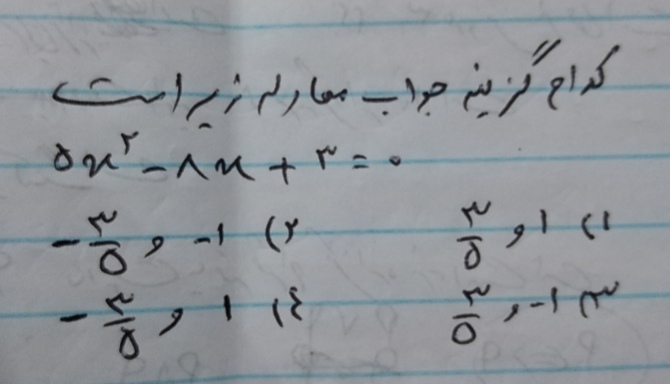 کدام گزینه جواب معادله زیر است
۵x² - ۸x + ۳ = ۰
۱) ۱ و ۳/۵ ۲) -۱ و -۳/۵
۳) -۱ و ۳/۵ ۴) ۱ و -۳/۵